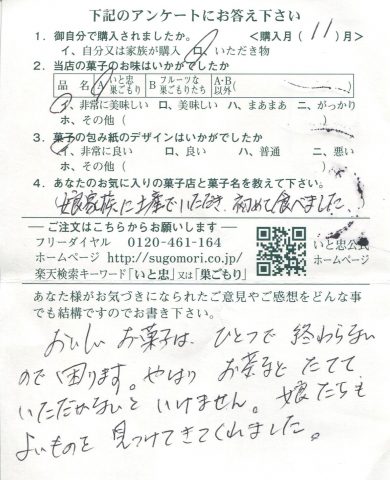 下記のアンケートにお答え下さい
1. 御自分で購入されましたか。 <購入月(11)月>
イ、自分又は家族が購入 ロ、いただき物
2. 当店の菓子のお味はいかがでしたか
品名 A いと忠巣ごもり B フルーツな巣ごもりたち A・B以外( )
イ、非常に美味しい ロ、美味しい ハ、まあまあ ニ、がっかり
ホ、その他(
3. 菓子の包み紙のデザインはいかがでしたか
イ、非常に良い ロ、良い ハ、普通 ニ、悪い
ホ、その他(
4. あなたのお気に入りの菓子店と菓子名を教えて下さい。
(娘家族に土産でいただき、初めて食べました。)
―ご注文はこちらからお願いします―
フリーダイヤル 0120-461-164
ホームページ http://sugomori.co.jp/
楽天検索キーワード「いと忠」又は「巣ごもり」
いと忠公式
ホームページ
あなた様がお気づきになられたご意見やご感想をどんな事
でも結構ですのでお書き下さい。
おいしいお菓子は、ひとつで終わらない
ので困ります。やはりお茶などたてて
いただかないといけません。娘たちも
よいものを見つけてきてくれました。